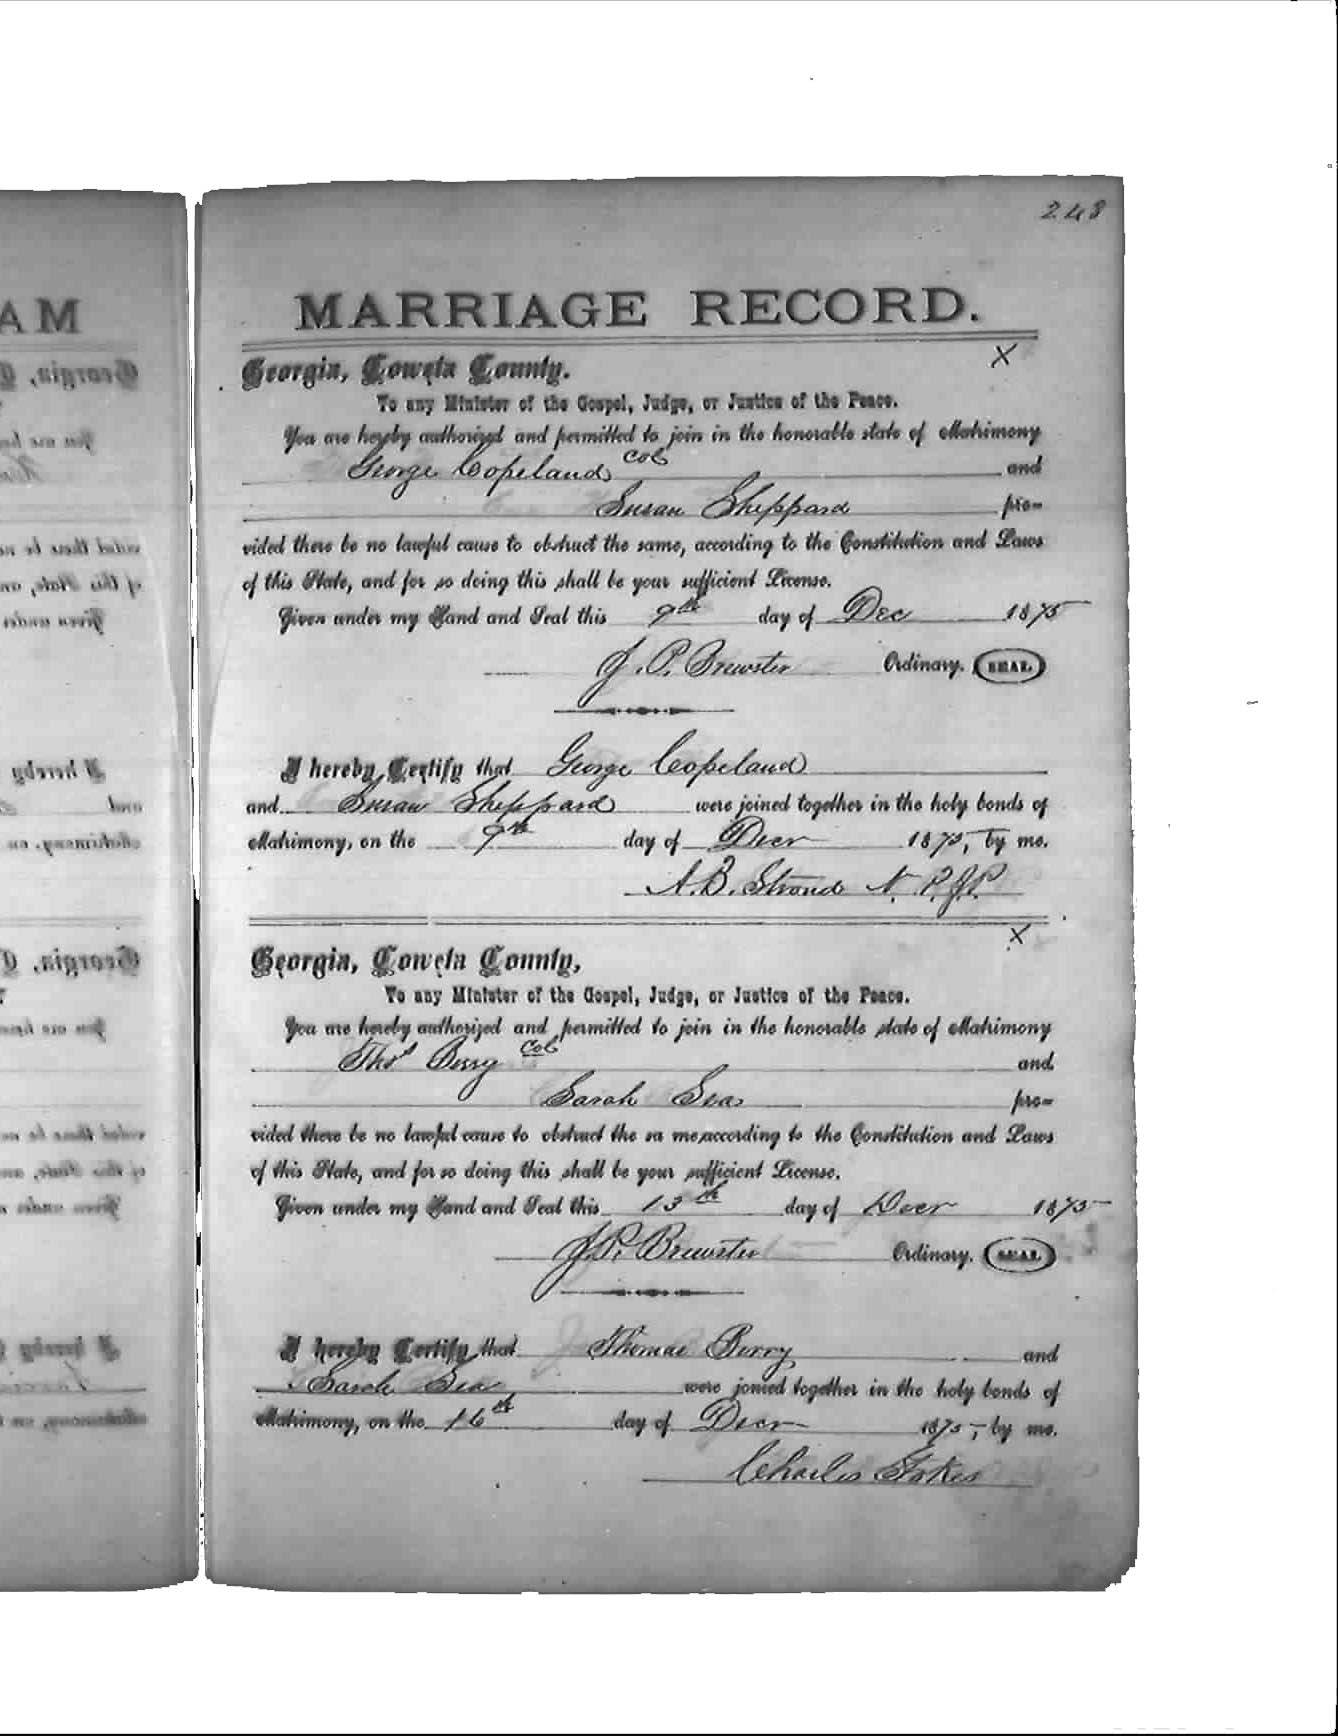 248
MARRIAGE RECORD.
X
Georgia, Coweta County.
To any Minister of the Gospel, Judge, or Justice of the Peace.
You are hereby authorized and permitted to join in the honorable state of Matrimony
George Copeland Col and
Susan Sheppard pro-
vided there be no lawful cause to obstruct the same, according to the Constitution and Laws
of this State, and for so doing this shall be your sufficient License.
Given under my Hand and Seal this 9th day of Dec 1875
J. P. Brewster Ordinary. SEAL
I hereby Certify that George Copeland
and Susan Sheppard were joined together in the holy bonds of
Matrimony, on the 9th day of Decr 1875, by me.
A. B. Stroud N. P. J. P.
X
Georgia, Coweta County,
To any Minister of the Gospel, Judge, or Justice of the Peace.
You are hereby authorized and permitted to join in the honorable state of Matrimony
Thos Berry Col and
Sarah Gea pro-
vided there be no lawful cause to obstruct the sa me, according to the Constitution and Laws
of this State, and for so doing this shall be your sufficient License.
Given under my Hand and Seal this 13th day of Decr 1875
J. P. Brewster Ordinary. SEAL
I hereby Certify that Thomas Berry and
Sarah Gea were joined together in the holy bonds of
Matrimony, on the 16th day of Decr 1875, by me.
Charles Stokes